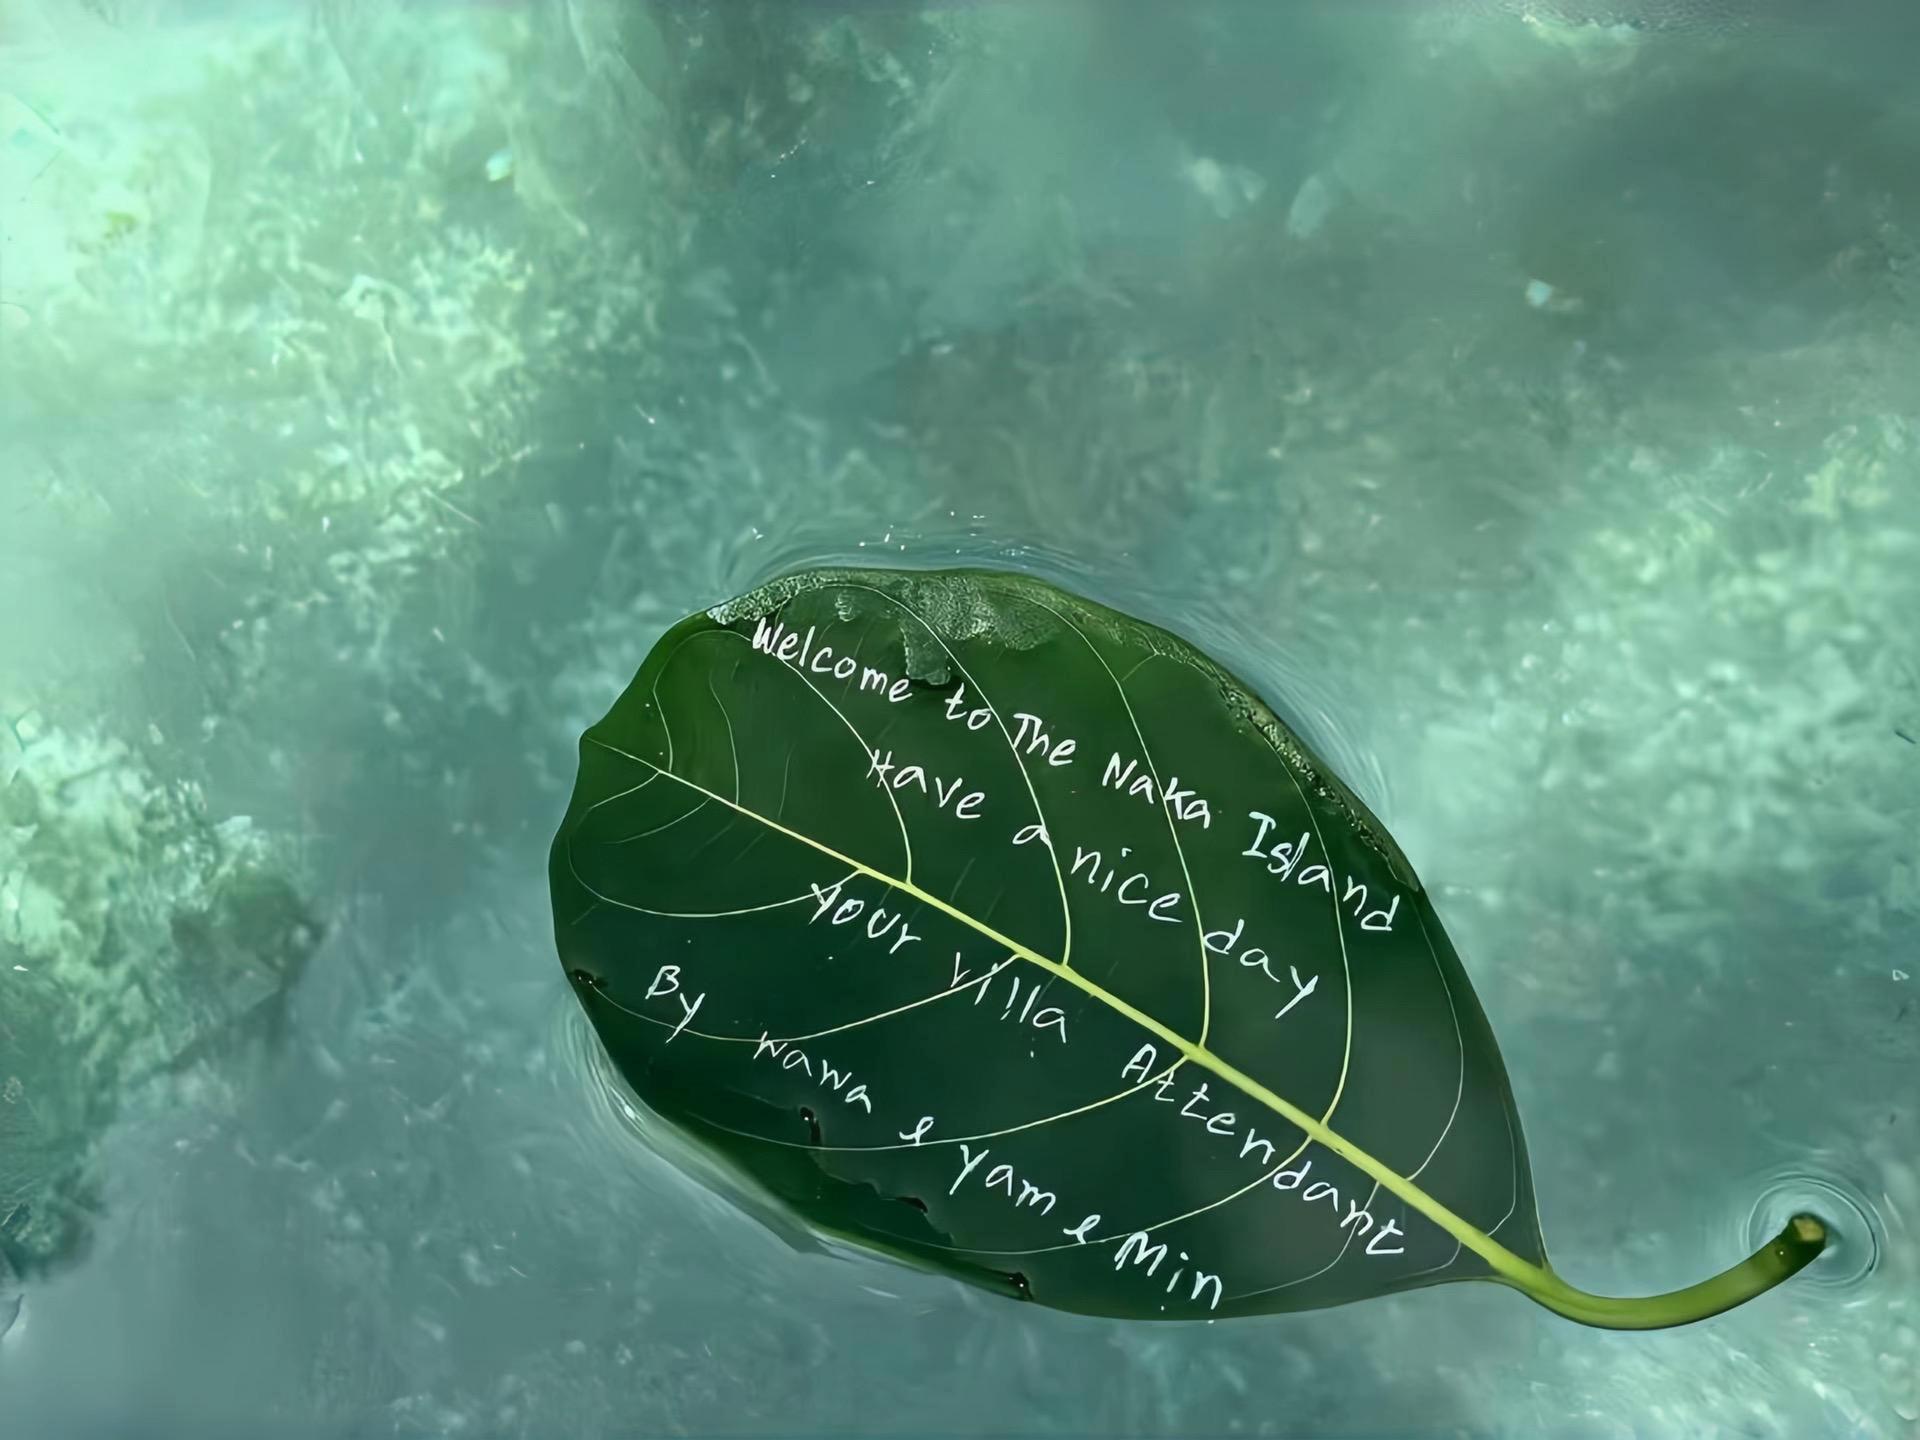 Welcome to The Naka Island
Have a nice day
Your villa Attendant
By wawa & yam e Min